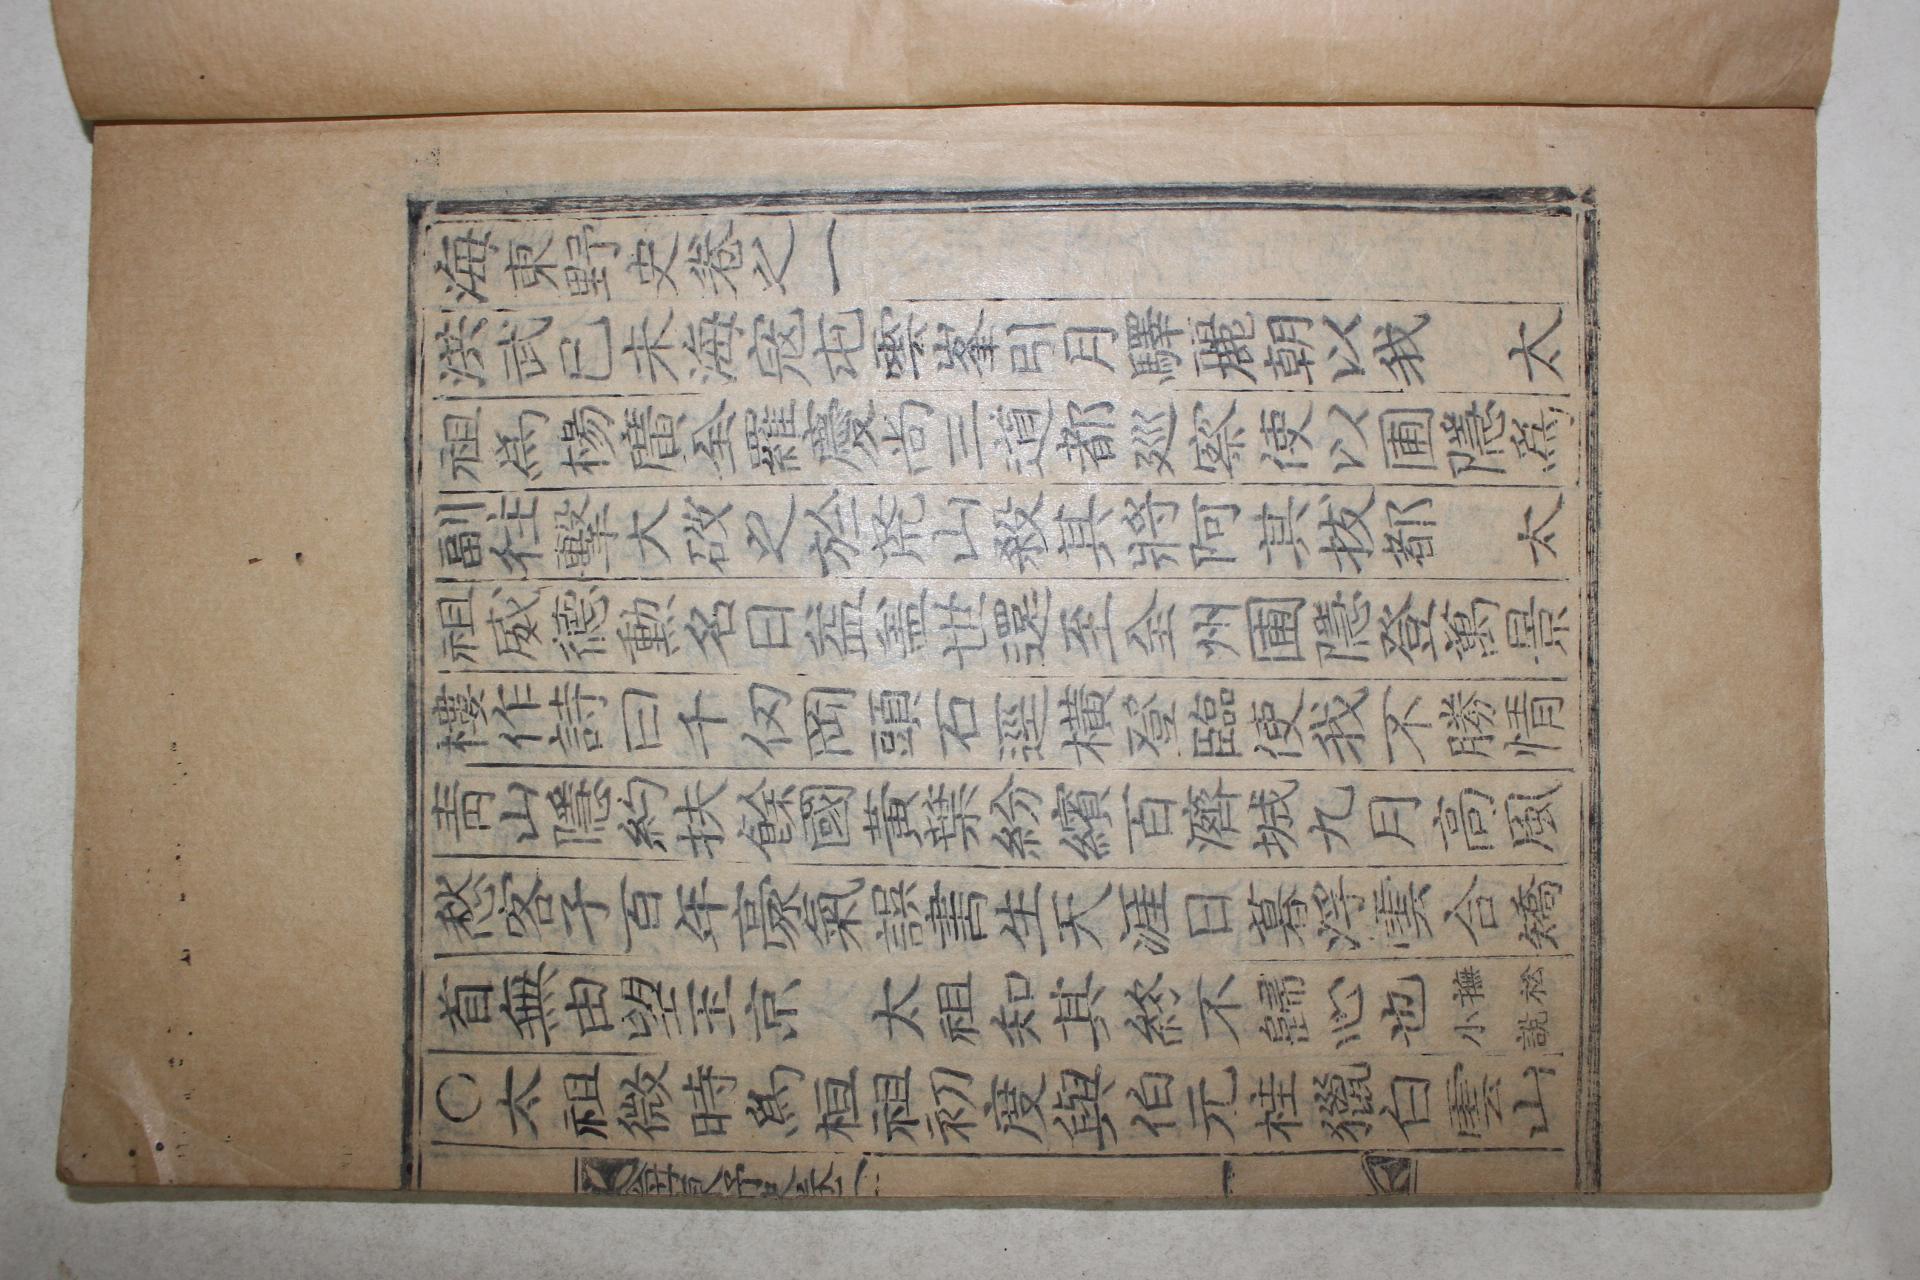 海東野史卷之一
洪武己未海寇屯喫峯引月驛麗朝以我 太
祖爲楊廣全羅慶尙三道都巡察使以圃隱爲
副往擊大破之於荒山殺其將阿其拔都 太
祖威德動名日益盖世還至全州圃隱登萬景
樓作詩曰千仞岡頭石逕橫登臨使我不勝情
靑山隱約扶餘國黃葉紛繽百濟城九月高風
愁客子百年豪氣誤書生天涯日暮浮雲合矯
首無由望玉京 太祖知其終不歸心也 小撫
說松
〇太祖微時爲桓祖初度與伯元桂獵白雲山
海東野史卷一